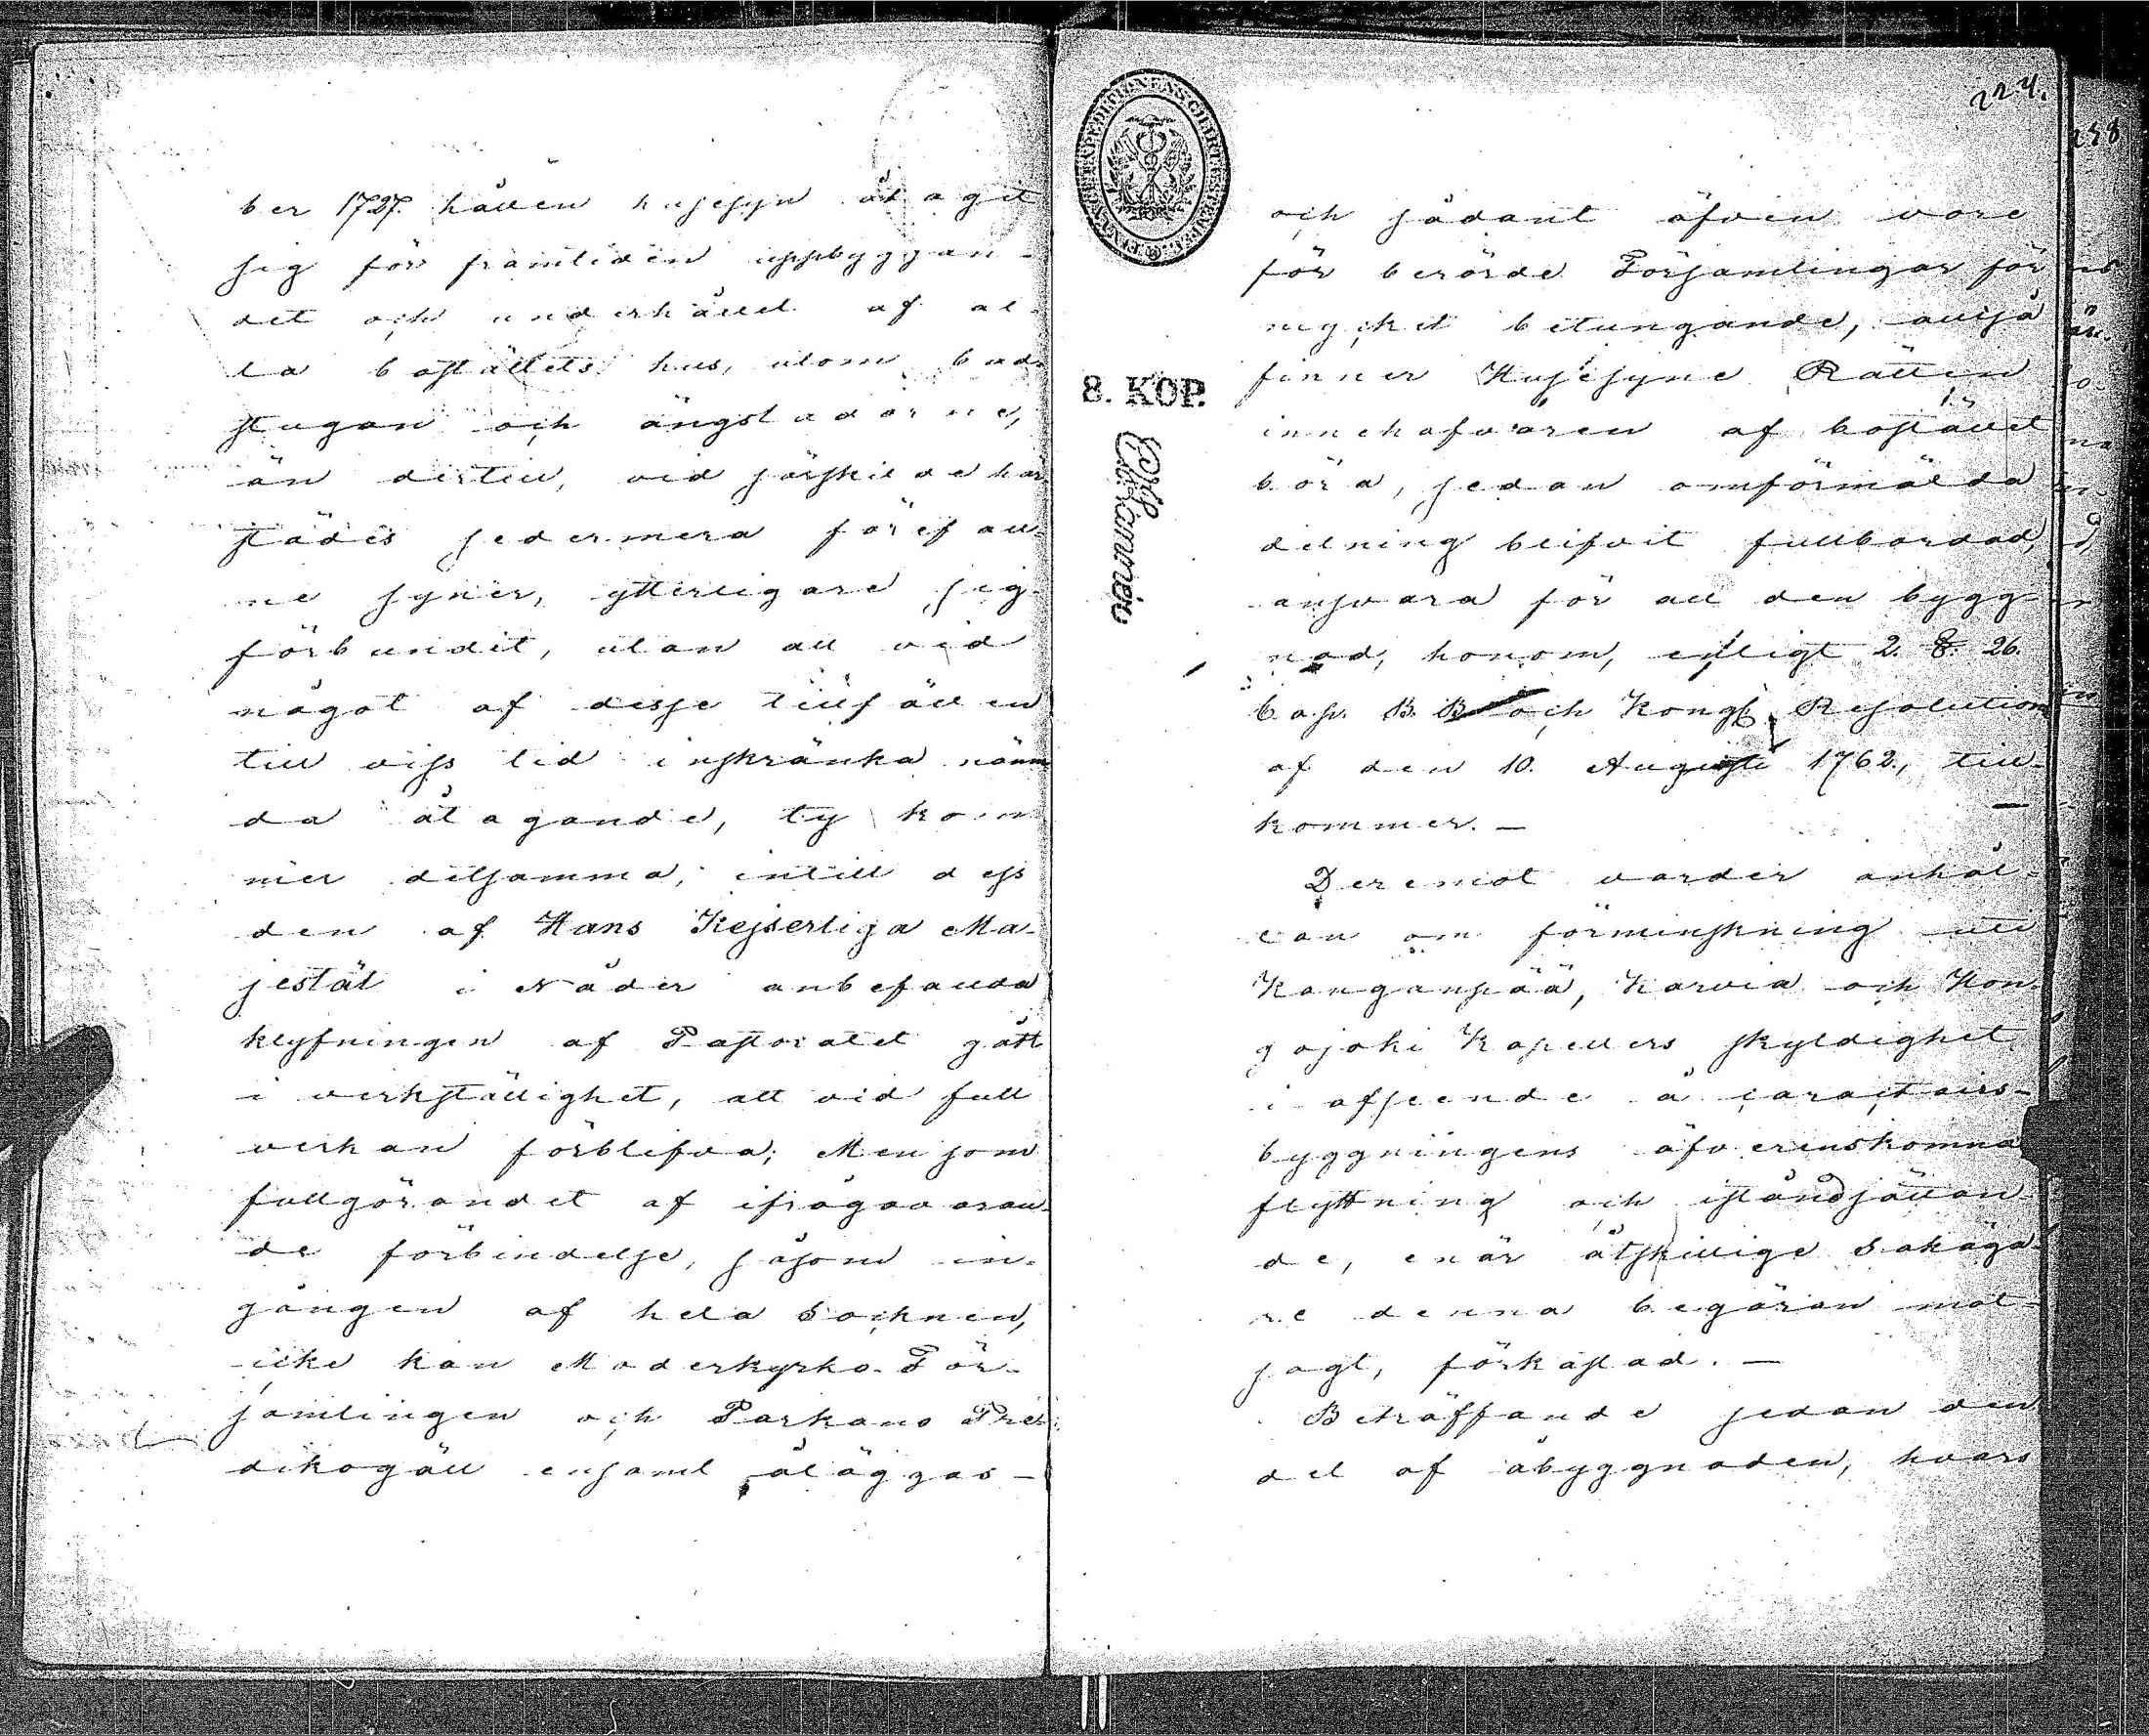 ber 1727. hållen husesyn åtagit
sig för framtiden uppbyggan-
det och underhållet af al-
la boställets hus, utom bad-
stugan och ängsladorne,
än dertill, vid särskilde här-
städes sedermera förefall-
ne syner, ytterligare sig
förbundit, utan att vid
något af desse tillfällen
till viss tid inskränka nämn
da åtagande, ty kom
mer detsamma, intill dess
den af Hans Kejserliga Ma-
jestät i Nåder anbefallda
klyfningen af Pastoratet gått
i verkställighet, att vid full
verkan förblifva; Men som
fullgörandet af ifrågavaran-
de förbindelse, såsom in-
gången af hela Socknen,
icke kan Moderkyrko-För-
samlingen och Parkano Pre-
dikogäll ensamt åläggas -
224.
258
FINANCE EXPEDITIONENS CHARTÆ STEMPEL
8. KOP.
och sådant äfven vore
för berörde Församlingar för
mycket betungande, alltså
finner Husesyns Rätten
innehafvaren af bostället
böra, sedan omförmälda
delning blifvit fullbordad,
ansvara för all den bygg-
nad, honom, enligt 2. §. 26.
Cap. B. B. och Kongl. Resolution
af den 10. Augusti 1762, till-
kommer. —
Deremot varder anhål-
lan om förminskning uti
Kanganpää, Karvia och Hon-
gojoki Kapellers skyldighet
i afseende å caractairs-
byggningens öfverenskomna
flyttning och iståndsättan-
de, enär åtskillige Sakäga-
re denna begäran mot-
sagt, förkastad. —
Beträffande sedan den
del af åbyggnaden, hvars